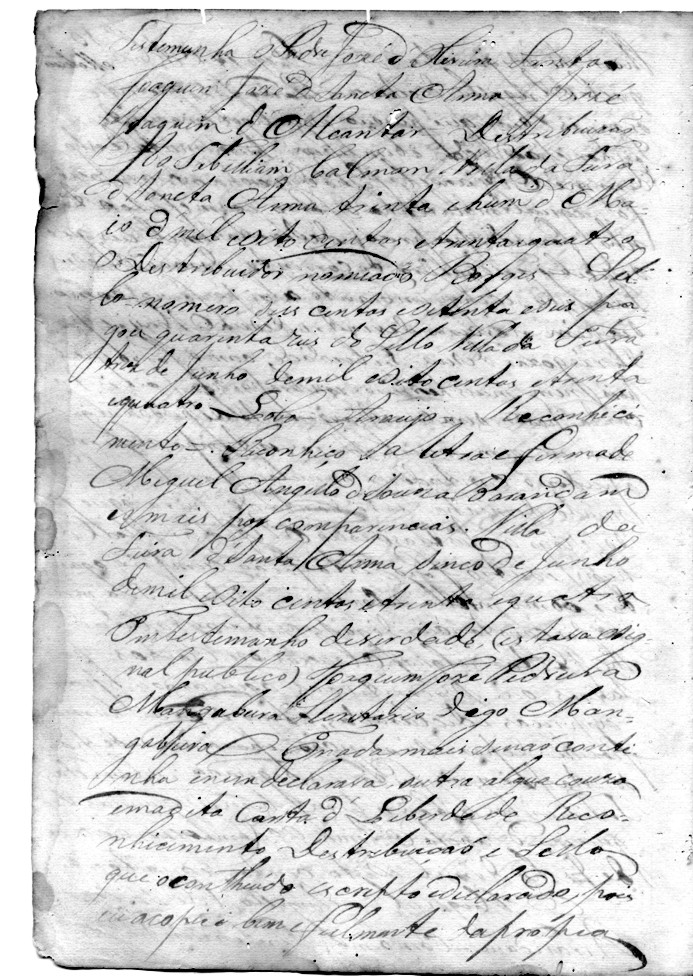 Testemunha o Padre José d Oliveira
Joaquim Jozé d Sancta Anna José
Joaquim d Alcantar Destribuicaõ
Calmon Villa da Feira
d Sancta Anna trinta ehum d Ma-
io d mil eoito centos etrinta equatro
o Destribuidor nomiado Borges Sel-
lo numero dus centos esetenta edus pa
gou quarenta reis do Sello Villa da Feira
tres de Junho demil eoito centos etrinta
equatro Lobo Araujo Reconheci
mento = Riconheço a letra e firma de
Miguel Angello d Souza
emais por comparencias. Villa da
Feira d Santa Anna sinco de Junho
demil eoito centos etrinta equatro
Em testemunho deverdade, (estava o sig-
nal publico) Joaquim Joze Pedreira
Mangabura digo Man-
gabeira Enada mais senaõ conti
nha enem declarava outra algua couza
em a dita Carta d Liberdade Reco-
nhicimento Destribuicaõ e Sello
que o contheudo escripto edeclarado, pois
a copiei bem e fielmente da propria